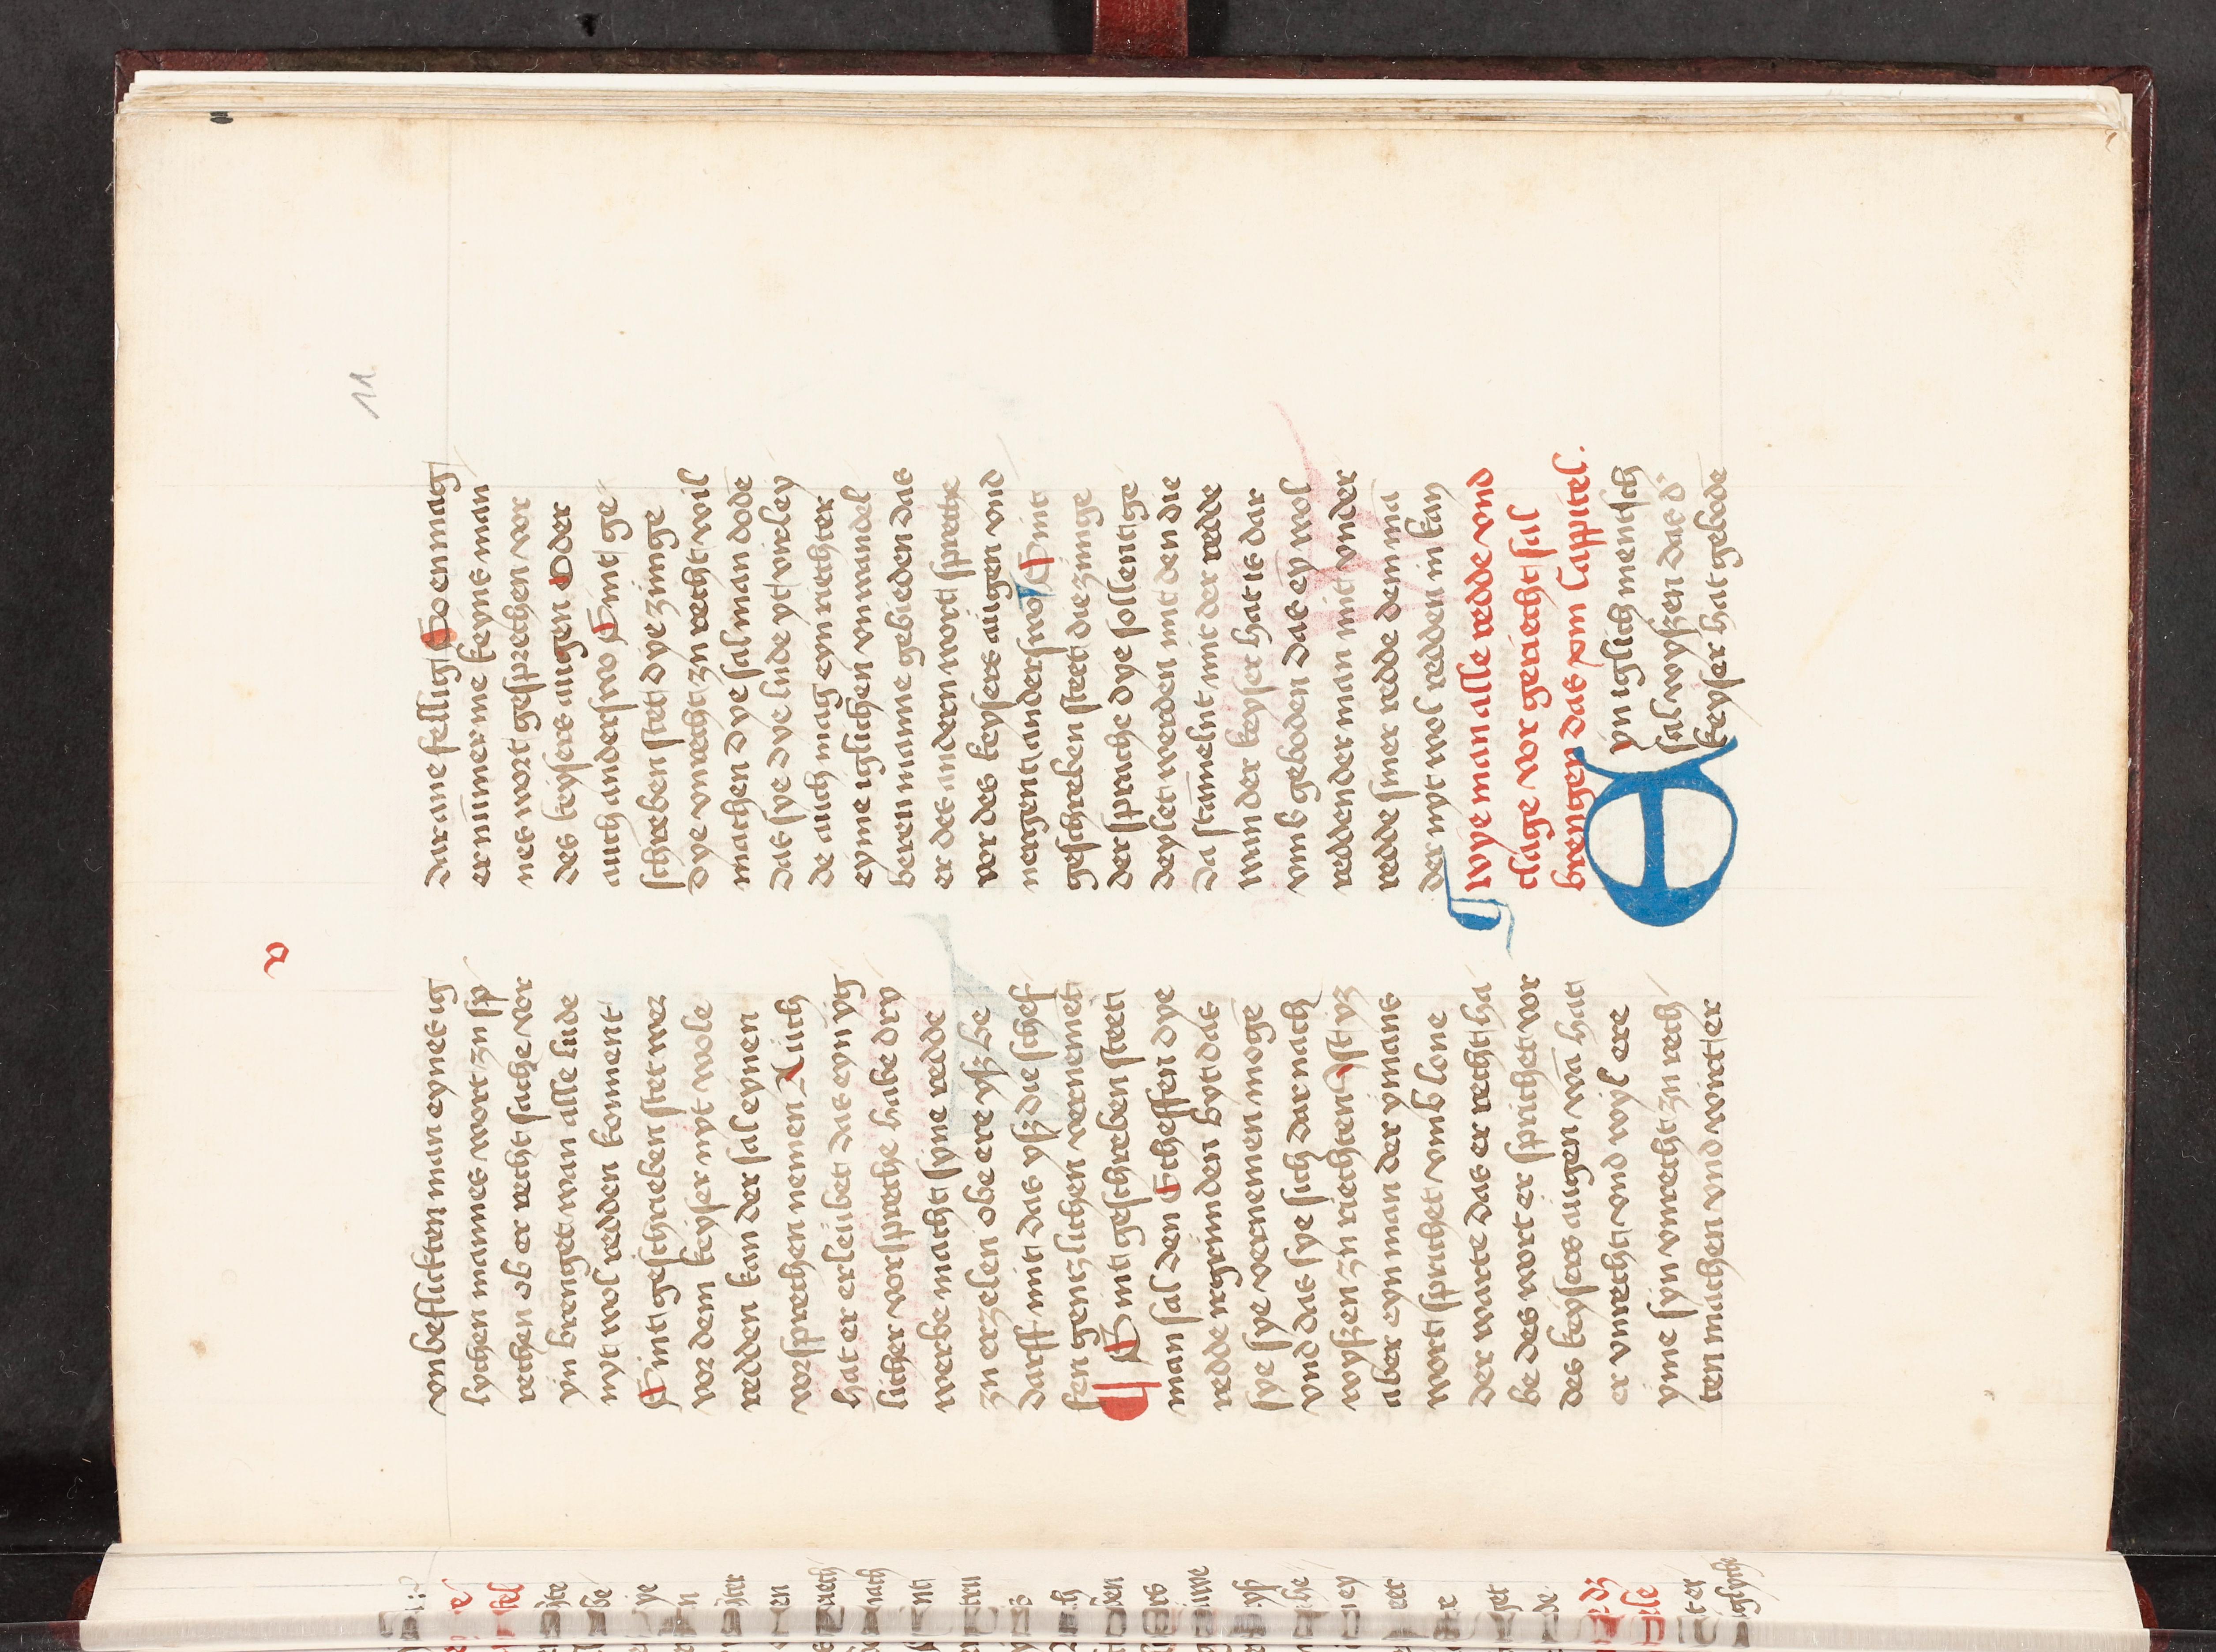 v
11
vnbeflickten man eynes ig
lychen mannes wort zu sp
rechen ob er recht sache vor
yn brenget wan alle lude
nyt wol redden konnent
Sint geschrieben stet wer
vor dem keyser nyt wole
redden kan der sal eynen
vorsprechen nemen Auch
hat er erleubet das eyn yg
licher vorspreche habe dry
werbe macht syne redde
zu erzelen obe ere yß be
darff mit das yß die schef
fen gentzlichen vernemet
Sint geschreben steet
man sal den Scheffen dye
redde urgrunden byt das
sye sye vernemen mogē
vnd das sye sich darnach
wyßen zu riechten Ist yz
aber eyn man der ymans
wort sprichet vmb lone
der warte das er recht ha
be des wort er sprichet vor
des keysers augen wā hat
er vnrecht vnd wyl ere
yme syn vnrecht zu rech
ten machen vnd wirt er
dar ane fellig So en mag
er nūmer me keyns man
nes wort gesprechen vor
des keysers augen Oder
auch anderswo Sint ge
schreben stet dye zunge
dye vnrecht zu recht wil
machen dye sal man dodē
das sye dye lude yt virley
de auch mag eyn riechter
eyme iglichen vnwandel
beren manne gebieden das
er des andern wort spreche
vor des keysers augen vnd
nergent anderswo Sint
geschreben steet die zunge
der sprache dye sollent ge
deylet werden mit den die
da stāmelnt mit der redde
wan der keyser hat is dar
vmb geboden das ey wol
reddender man mit vnder
redde siner redde dem mā
der nyt wol redden in kan
Wye man alle redde vnd
clage vor geriecht sal
brengen das xvm Cappitel.
Eyn iglich mentsch
sal wyßen das d'
keyser hat gebodē